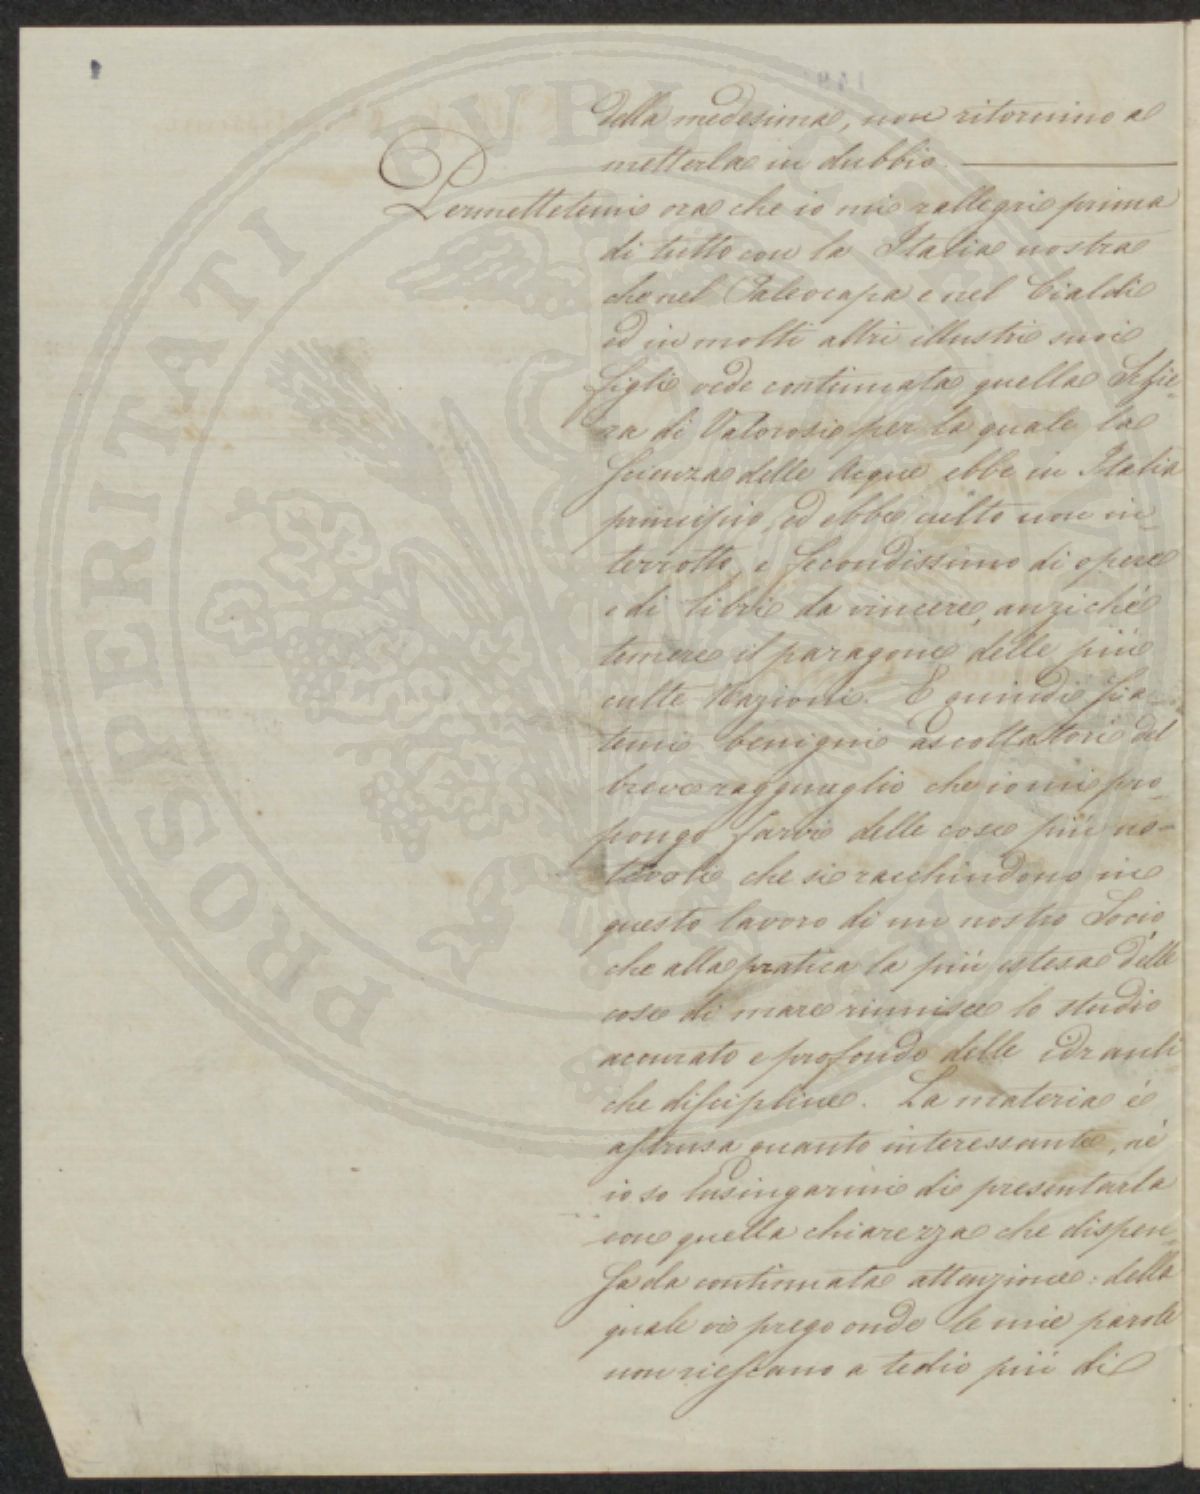 della medesima, non ritornino a
metterla in dubbio.
Permettetemi ora che io mi rallegri prima
di tutto con la Italia nostra
che nel Paleocapa e nel Cialdi
ed in molti altri illustri suoi
figli vede continuata quella Schie-
ra di Valorosi per la quale la
Scienza delle Acque ebbe in Italia
principio, ed ebbe culto non in-
terrotto, e fecondissimo di opere
e di libri da vincere, anziché
temere il paragone delle più
culte Nazioni. E quindi sia-
temi benigni ascoltatori del
breve ragguaglio che io mi pro-
pongo farvi delle cose più no-
tevoli che si racchiudono in
questo lavoro di un nostro Socio
che alla pratica la più estesa delle
cose di mare riunisce lo studio
accurato e profondo delle idrauli
che discipline. La materia è
astrusa quanto interessante, né
io so lusingarmi di presentarla
con quella chiarezza che dispen-
sa da continuata attenzione: della
quale vi prego onde le mie parole
non riescano a tedio più di
PROSPERITATI PUBLICAE